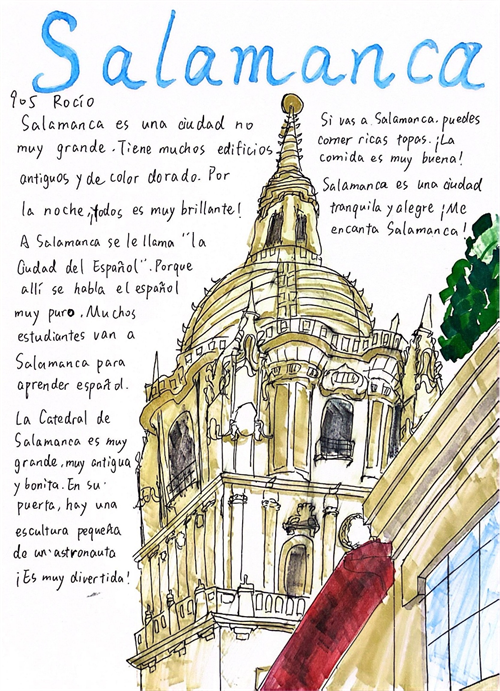 Salamanca
905 Rocío
Salamanca es una ciudad no
muy grande. Tiene muchos edificios
antiguos y de color dorado. Por
la noche, ¡todos es muy brillante!
A Salamanca se le llama "la
Ciudad del Español". Porque
allí se habla el español
muy puro. Muchos
estudiantes van a
Salamanca para
aprender español.
La Catedral de
Salamanca es muy
grande, muy antigua
y bonita. En su
puerta, hay una
escultura pequeña
de un astronauta
¡Es muy divertida!
Si vas a Salamanca. puedes
comer ricas tapas. ¡La
comida es muy buena!
Salamanca es una ciudad
tranquila y alegre ¡Me
encanta Salamanca!